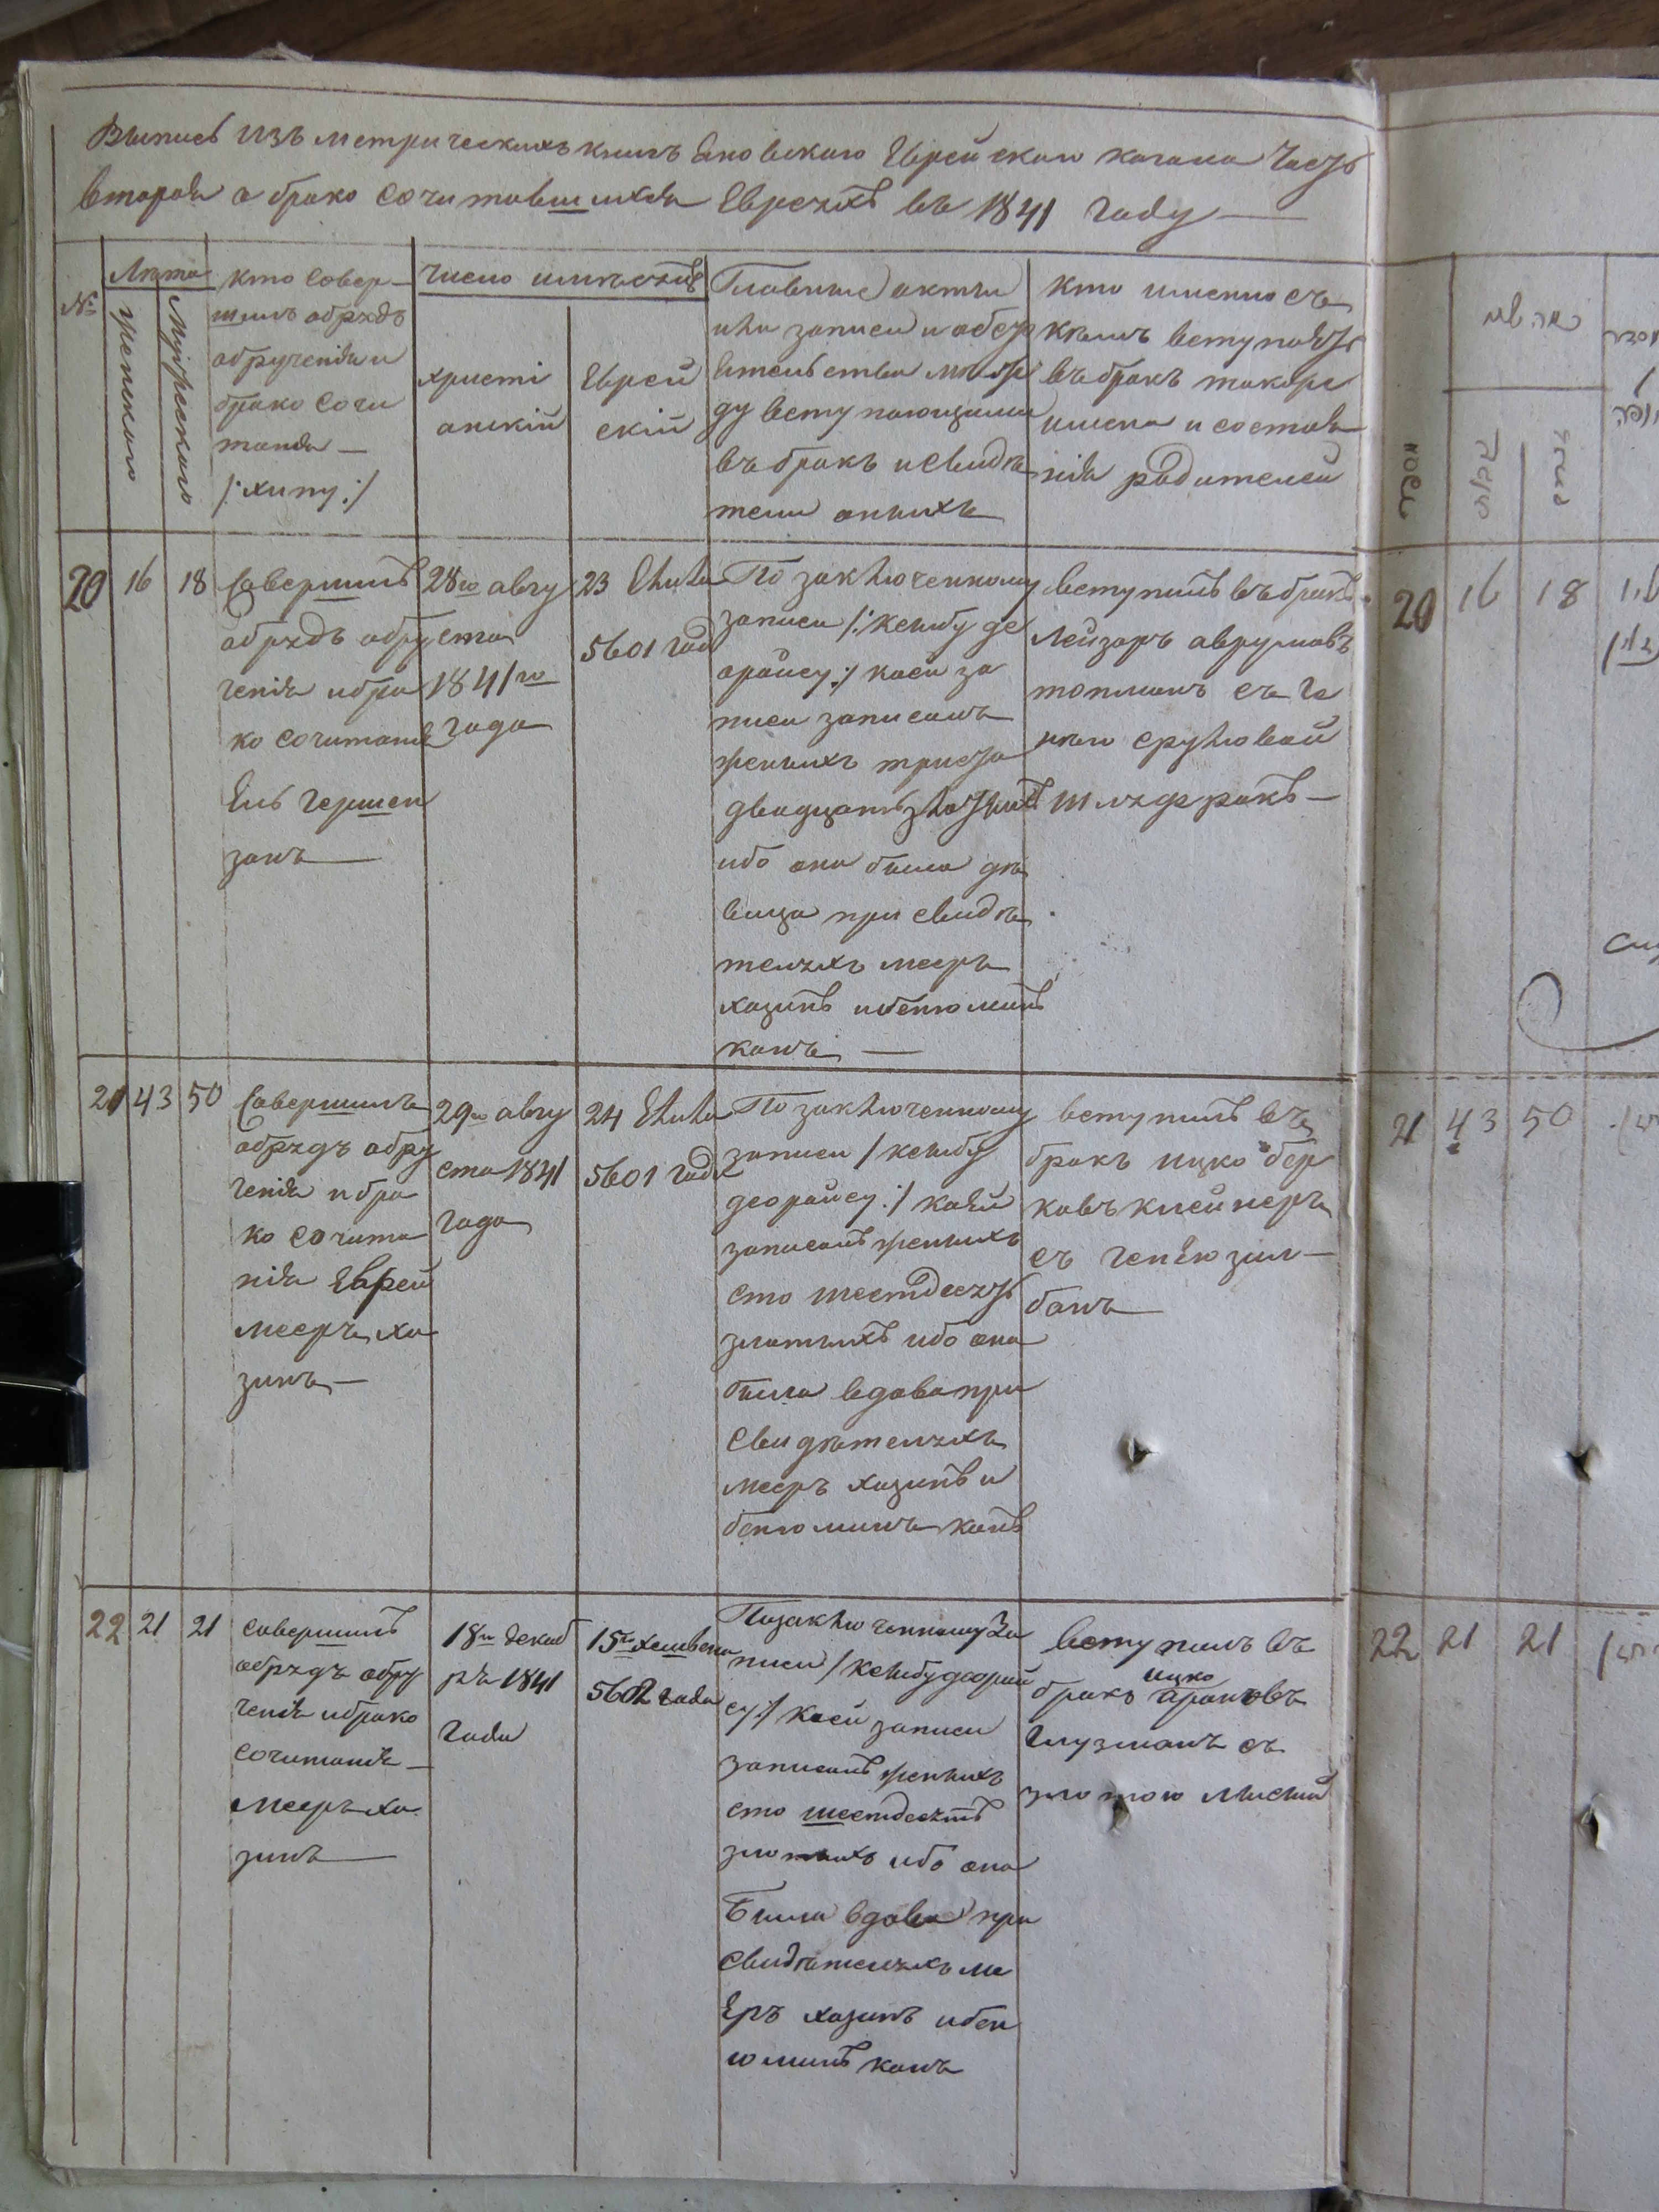 Выпись изъ метрическихъ книгъ Яновскаго Еврейскаго кагала Часть
вторая о брако сочитавшихся Евреяхъ въ 1841 году
№
Лета
женского
Мужеского
кто совер-
шилъ обрядъ
обрученія и
брако сочи
танія —
/:хипу:/
Число и месяцъ
христі
анскій
Еврей
скій
Главные акты
или записи и обез
ательства меж
ду вступающими
въ бракъ и свидѣ
тели оныхъ
кто именно съ
кѣмъ вступаетъ
въ бракъ такоже
имена и состоя
нія родителей
20
16
18
Совершилъ
обрядъ обру
ченія и бра
ко сочитанія
Ель Гершен
занъ
28го авгу
ста
1841го
года
23 Елуля
5601 год
По заключенному
записи /:ксыбу де
орайсу:/ коей за
писи записалъ
женихъ триста
двадцать злотыхъ
ибо она была дѣ
вица при свидѣ
теляхъ мееръ
хазинъ и бенюминъ
канъ —
вступилъ въ бракъ
Лейзоръ аврумовъ
топманъ съ
сруловой
20
16
18
21
43
50
Совершилъ
обрядъ обру
ченія и бра
ко сочита
нія Еврей
мееръ ха
зинъ —
29го авгу
ста 1841
года
24 Елуля
5601 года
По заключенному
записи /ксыбу
деорайсу:/ коей
записалъ женихъ
сто шестдесятъ
златыхъ ибо она
была вдова при
свидѣтеляхъ
мееръ хазинъ и
бенюминъ канъ
вступилъ въ
бракъ ицко бер
ковъ клейнеръ
съ генею зил-
банъ
21
43
50
22
21
21
совершилъ
обрядъ обру
ченія и брако
сочитанія —
мееръ ха
зинъ
18го декаб
ря 1841
года
15го
5602 года
По заключенному за
писи /ксыбу деорай
су:/ коей записи
записалъ женихъ
сто шестдесятъ
злотыхъ ибо она
Была вдова при
свидѣтеляхъ ме
еръ хазинъ и бен
юминъ канъ
вступилъ въ
бракъ ицко ароновъ
глузманъ съ
златою
22
21
21